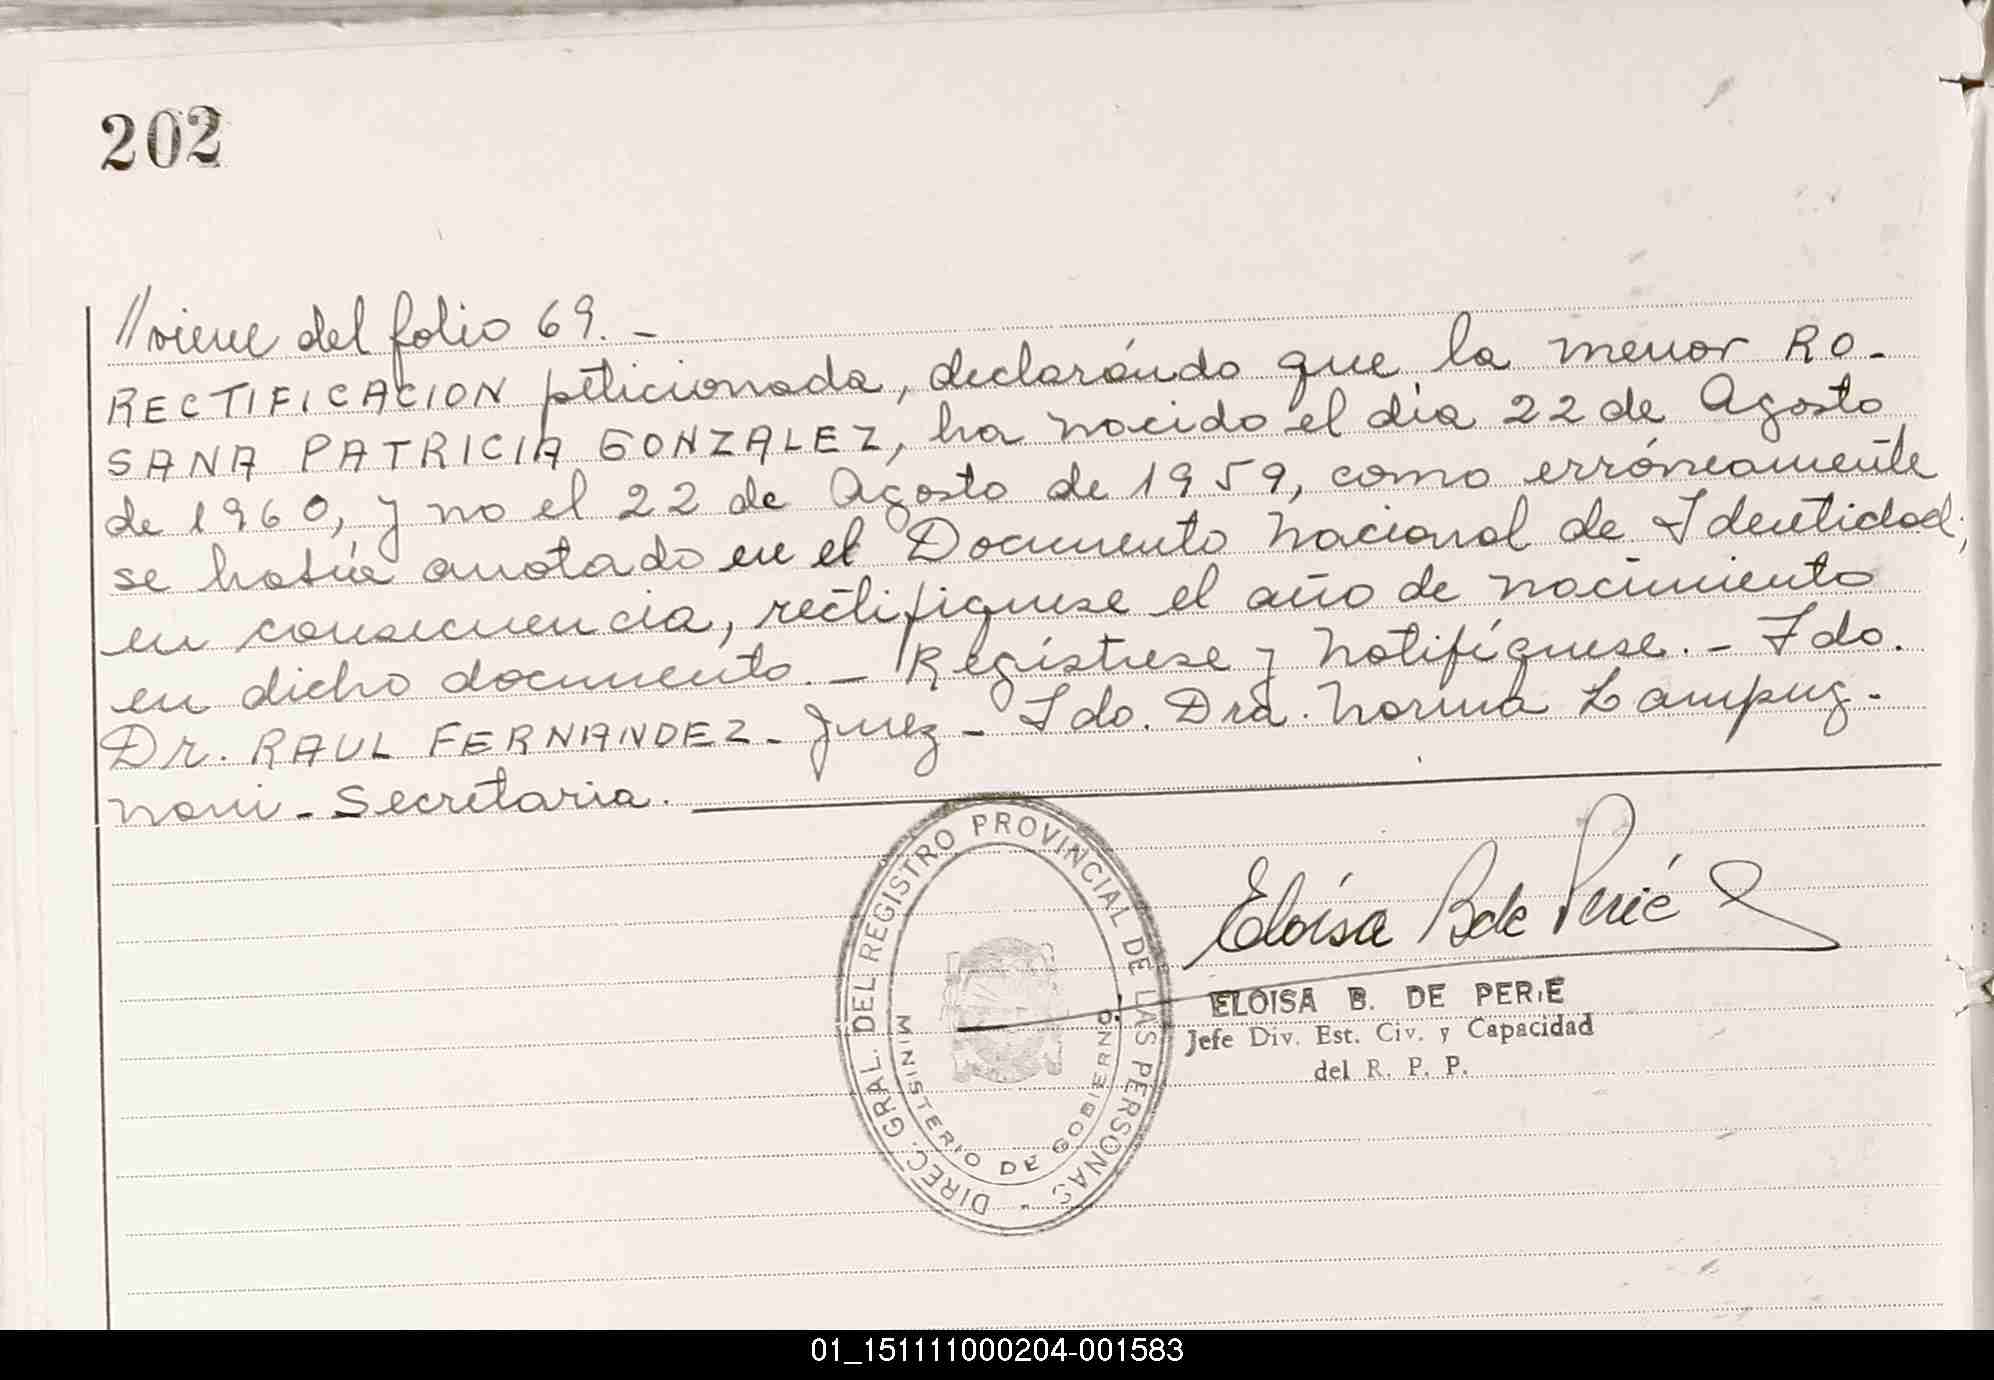 202
//viene del folio 69.-
RECTIFICACION peticionada, declarándo que la menor RO-
SANA PATRICIA GONZALEZ, ha nacido el día 22 de Agosto
de 1960, y no el 22 de Agosto de 1959, como erróneamente
se había anotado en el Documento Nacional de Identidad;
en consecuencia, rectifíquese el año de nacimiento
en dicho documento.- Regístrese y Notifíquese.- Fdo.
Dr. RAUL FERNANDEZ- Juez- Fdo. Dra. Norma Lampug-
nani- Secretaria.
DIREC. GRAL. DEL REGISTRO PROVINCIAL DE LAS PERSONAS -
MINISTERIO DE GOBIERNO
Eloísa B de Perié
ELOISA B. DE PERIE
Jefe Div. Est. Civ. y Capacidad
del R. P. P.
01_151111000204-001583